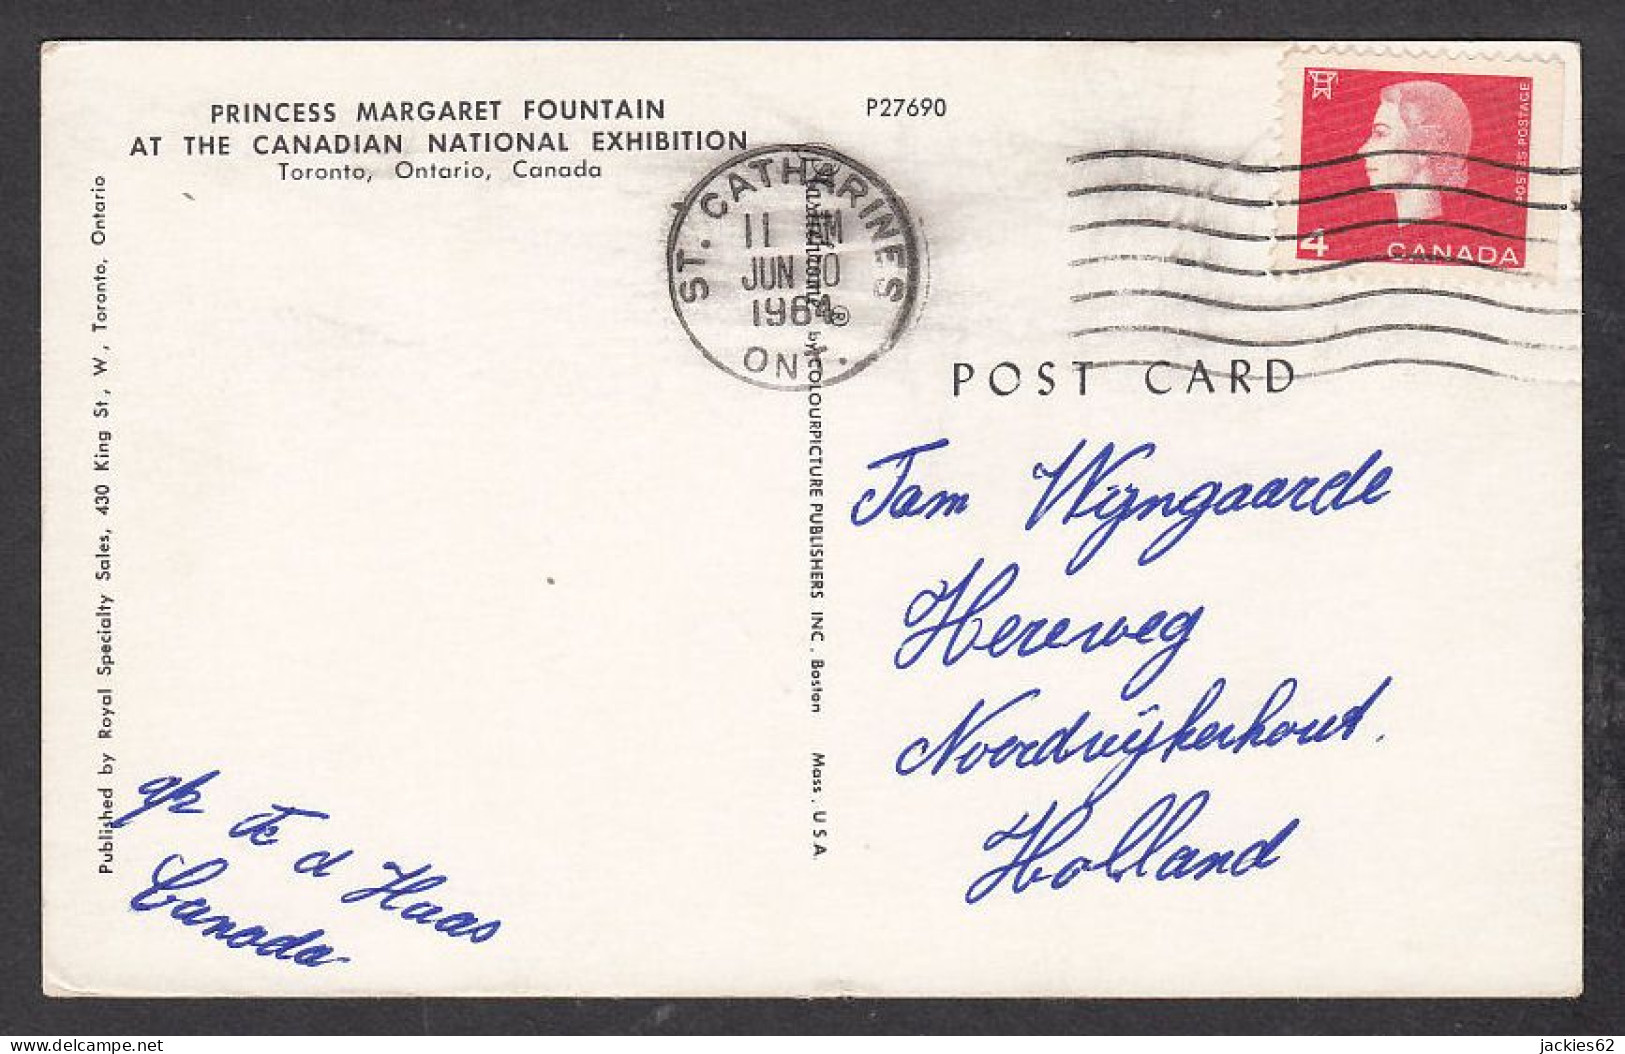 PRINCESS MARGARET FOUNTAIN
AT THE CANADIAN NATIONAL EXHIBITION
Toronto, Ontario, Canada
P27690
Published by Royal Specialty Sales, 430 King St, W, Toronto, Ontario
ST. CATHARINES
11
JUN
1964
ONT.
Plastichrome® by COLOURPICTURE PUBLISHERS INC. Boston Mass, U S A
POSTES POSTAGE
4
CANADA
POST CARD
Tam Wijngaarde
Hereweg
Noordwijkerhout.
Holland
d Haas
Canada
delcampe.net
jackies62